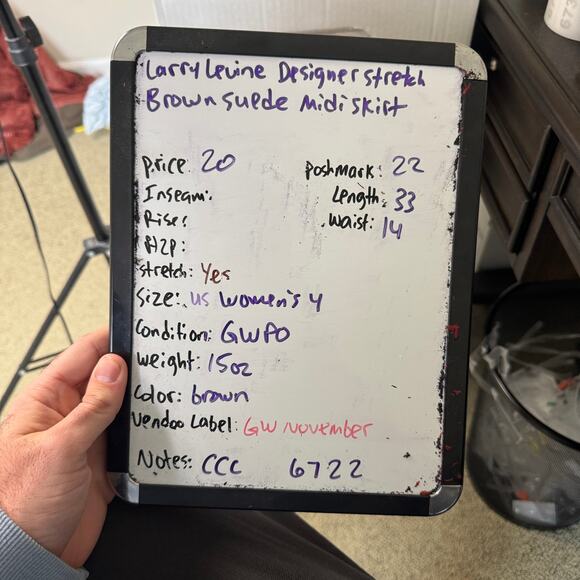 Larry Levine Designer stretch
Brown Suede Midi Skirt
price: 20
poshmark: 22
Inseam:
Length: 33
Rise:
waist: 14
P2P:
stretch: Yes
Size: US Women's 4
Condition: GWPO
weight: 15oz
Color: brown
Vendoo Label: GW November
Notes: CCC 6722